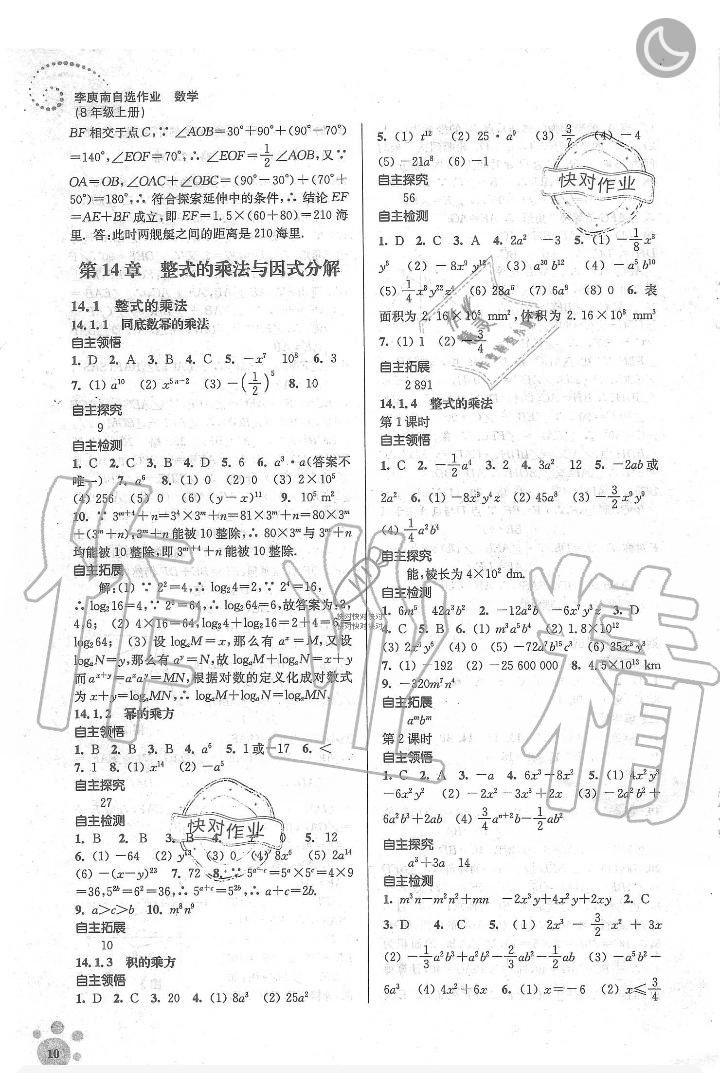 李庾南自选作业 数学
(8年级上册)
BF相交于点C,∵∠AOB=30°+90°+(90°-70°)
=140°,∠EOF=70°,∴∠EOF=1/2∠AOB,又∵
OA=OB,∠OAC+∠OBC=(90°-30°)+(70°+
50°)=180°,∴符合探索延伸中的条件,∴结论EF
=AE+BF成立,即EF=1.5×(60+80)=210海
里.答:此时两舰艇之间的距离是210海里.
第14章 整式的乘法与因式分解
14.1 整式的乘法
14.1.1 同底数幂的乘法
自主领悟
1. D 2. A 3. B 4. C 5. -x⁷ 10⁸ 6. 3
7. (1) a¹⁰ (2) x⁵ⁿ⁻² (3) -(1/2)⁵ 8. 10
自主探究
9
自主检测
1. C 2. C 3. B 4. D 5. 6 6. a³·a(答案不
唯一) 7. a⁶ 8. (1) 0 (2) 0 (3) 2×10⁵
(4) 256 (5) 0 (6) (y-x)¹¹ 9. 10⁵ m²
10. ∵3ᵐ⁺⁴+n=3⁴×3ᵐ+n=81×3ᵐ+n=80×3ᵐ
+(3ᵐ+n),3ᵐ+n能被10整除,∴80×3ᵐ与3ᵐ+n
均能被10整除,即3ᵐ⁺⁴+n能被10整除.
自主拓展
解:(1)∵2²=4,∴log₂4=2,∵2⁴=16,
∴log₂16=4,∵2⁶=64,∴log₂64=6,故答案为:2,
4,6; (2) 4×16=64,log₂4+log₂16=2+4=6=
log₂64; (3)设logₐM=x,那么有aˣ=M,又设
logₐN=y,那么有aʸ=N,故logₐM+logₐN=x+y,
而aˣ⁺ʸ=aˣaʸ=MN,根据对数的定义化成对数式
为x+y=logₐMN,∴logₐM+logₐN=logₐMN.
14.1.2 幂的乘方
自主领悟
1. B 2. B 3. B 4. a⁶ 5. 1或-17 6. <
7. 1 8. (1) x¹⁴ (2) -a⁵
自主探究
27
自主检测
1. B 2. B 3. B 4. 0 5. 12
6. (1) -64 (2) y¹³ (3) 0 (4) 8x⁶ (5) 2a¹⁴
(6) -(x-y)²³ 7. 72 8. ∵5ᵃ⁺ᶜ=5ᵃ×5ᶜ=4×9
=36,5²ᵇ=6²=36,∴5ᵃ⁺ᶜ=5²ᵇ,∴a+c=2b.
9. a>c>b 10. m⁸n⁹
自主拓展
10
14.1.3 积的乘方
自主领悟
1. D 2. C 3. 20 4. (1) 8a³ (2) 25a²
5. (1) t¹² (2) 25·a⁹ (3) 3/7 (4) -4
(5) -21a⁸ (6) -1
自主探究
56
自主检测
1. D 2. C 3. A 4. 2a² -3 5. (1) -1/8x⁸
y⁶ (2) -8x⁹y¹² (3) a³⁰b¹⁰ (4) a⁹b¹⁸
(5) 1/4x⁸y²²z⁴ (6) 28a⁶ (7) 6a⁹ (8) 0 6. 表
面积为2.16×10⁵ mm²,体积为2.16×10⁸ mm³
7. (1) 1 (2) -3/4
自主拓展
2 891
14.1.4 整式的乘法
第1课时
自主领悟
1. C 2. -1/2a⁴ 3. 2 4. 3a² 12 5. -2ab或
2a² 6. (1) -8x³y⁴z (2) 45a⁸ (3) -3/2x⁹y⁹
(4) 1/4a²b⁴
自主探究
能,棱长为4×10² dm.
自主检测
1. 6m⁵ 42a³b² 2. -12a²b -6x⁷y³z 3. D
4. C 5. B 6. (1) m³a⁵b⁴ (2) 1.8×10¹²
(3) 2x⁴y⁵ (4) 0 (5) -72a⁷bc⁵ (6) 35x³y³
7. (1) -192 (2) -25 600 000 8. 4.5×10¹³ km
9. -320m⁷n⁴
自主拓展
aᵐbᵐ
第2课时
自主领悟
1. C 2. A 3. -a 4. 6x³-8x² 5. (1) 4x²y³
-6x²y² (2) -2x³-2x²+10x (3) -2a²b³+
6a²b²+2ab (4) 3/4aⁿ⁺²b-1/2ab²
自主探究
a³+3a 14
自主检测
1. m³n-m²n²+mn -2x³y+4x²y+2xy 2. C
3. D 4. C 5. (1) 2x³-3/2x²+3x
(2) -1/3a²b³+a²b²-2/3ab²-1/2ab (3) -a⁵b²+
6a³ (4) 4x²+6x 6. (1) x=-6 (2) x≤3/4
10
快对作业
快对作业
作业精